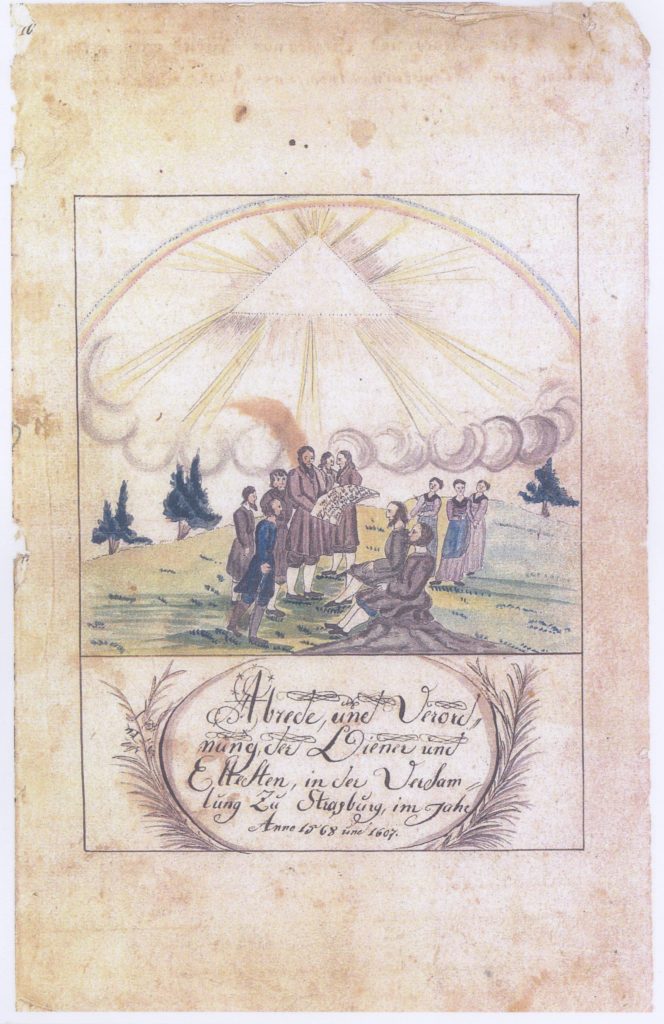 16
Abrede, und Verord,
nung, der Diener und
Eltesten, in der Versam-
lung Zu Strasburg, im Jahr
Anno 1568 und 1607.